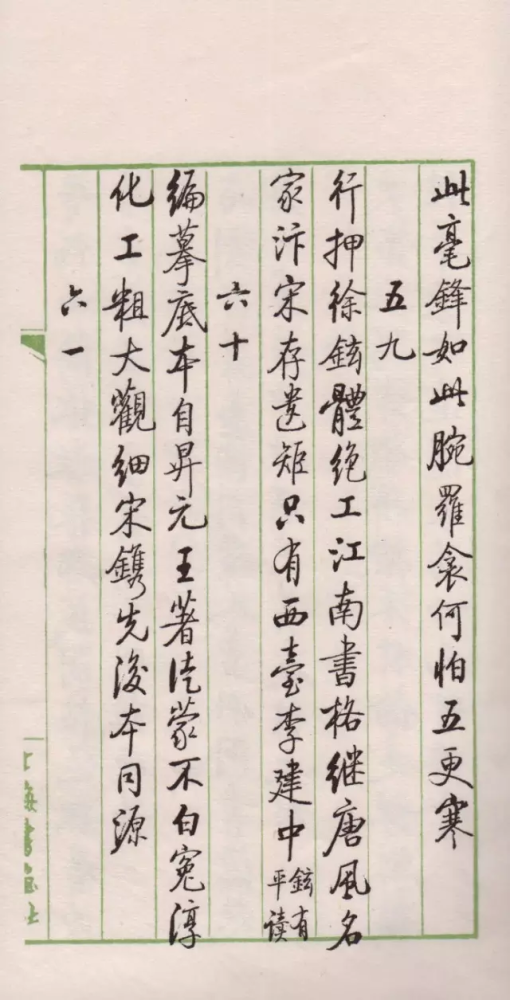 此毫鋒如此腕羅衾何怕五更寒
五九
行押徐鉉體絶工江南書格继唐風名
家汴宋存遺矩只有西臺李建中鉉有平读
六十
编摹底本自昇元王著徒蒙不白冤淳
化工粗大觀细宋鐫先後本同源
六一
上海書画社